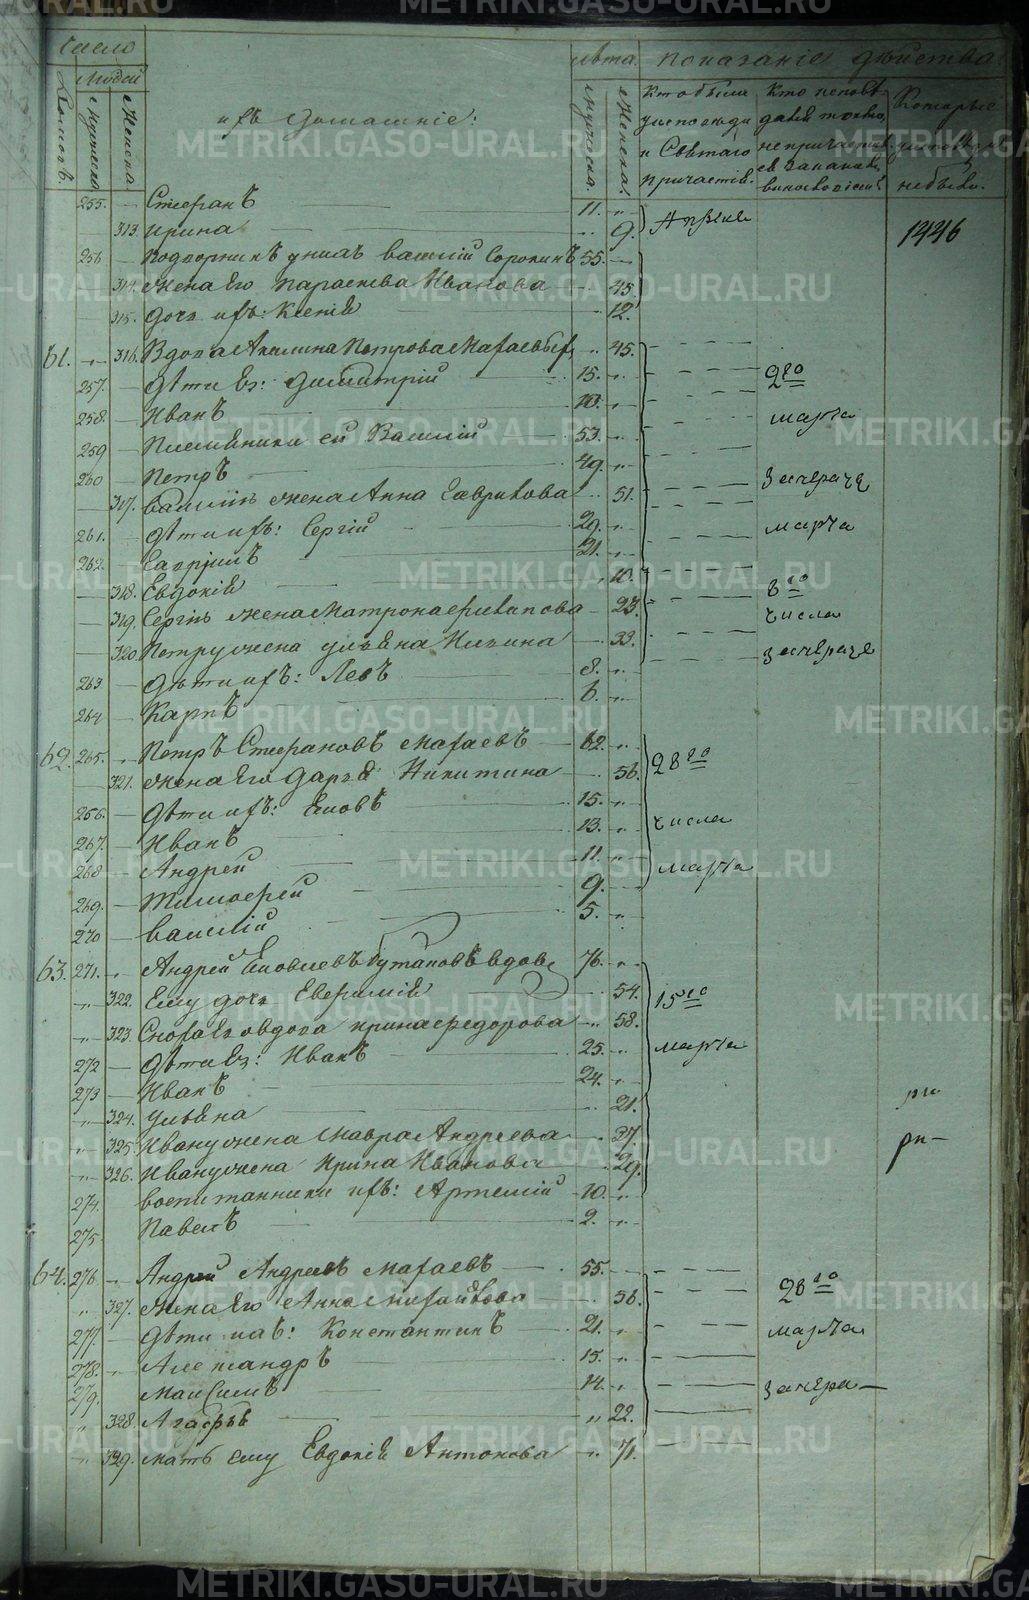 METRIKI.GASO-URAL.RU
число
людей
лѣта
показаніе дѣйства
домовъ
мужеска
женска
ихъ домашніе:
мужеска
женска
кто были
у исповѣди
и Святаго
причастія
кто исповѣ-
дался токмо,
не причастил-
ся
Которые
не были
255. — Стефанъ — 11. „
— 313. Ирина — „ 9.
Апрѣля
1446
256 — Подворникъ у нихъ Василій Сорокинъ 55. —
— 314. Жена Его Параскева Иванова — 45.
— 315. дочь ихъ: Ксенія — 12.
61. „ 316. Вдова Акилина Петрова Махаева „ 45.
257. — дѣти Ея: Димитрій — 15. „
2го
258. — Иванъ — 10. „
марта
259 — Племянники ей Василій 53. „
260 — Петръ — 49. „
— 317. Василія жена Анна Гаврилова „ 51.
261. — дѣти ихъ: Сергій — 29. „
марта
262. — Гавріилъ — 21. „
— 318. Евдокія — „ 10.
8го
— 319. Сергія жена Матрона Филипова — 23.
числа
— 320. Петру жена Ульяна Ильина — 33.
263 — дѣти ихъ: Левъ — 8. „
264 — Карпъ — 6. „
62. 265. „ Петръ Стефановъ Махаевъ — 62. „
28го
— 321. жена Его Дарья Никитина — 56.
266. — дѣти ихъ: Яковъ — 15. „
267. — Иванъ — 13. „
числа
268 — Андрей — 11. „
марта
269. — Тимофей — 9. „
270 — Василій — 5. „
63. 271. „ Андрей Яковлевъ Бутаковъ вдовъ 76. „
„ 322. Ему дочь Евфимія — 54.
15го
„ 323. Сноха Его вдова Ирина Федорова „ 58.
марта
272 — дѣти Ея: Иванъ — 25. „
273 — Иванъ — 24. „
„ 324. Ульяна — „ 21.
„ 325. Ивану жена Мавра Андреева — 37.
„ 326. Ивану жена Ирина Иванова — 29.
274. воспитанники ихъ: Артемій — 10. „
275 Павелъ — 2. „
64. 276 „ Андрей Андреевъ Махаевъ — 55. —
28го
„ 327. жена Его Анна Михайлова — 56.
277. — дѣти ихъ: Константинъ — 21. „
марта
278. „ Александръ — 15. „
279. — Максимъ — 14. „
„ 328. Агафья — „ 22.
„ 329. мать ему Евдокія Антонова — „ 71.